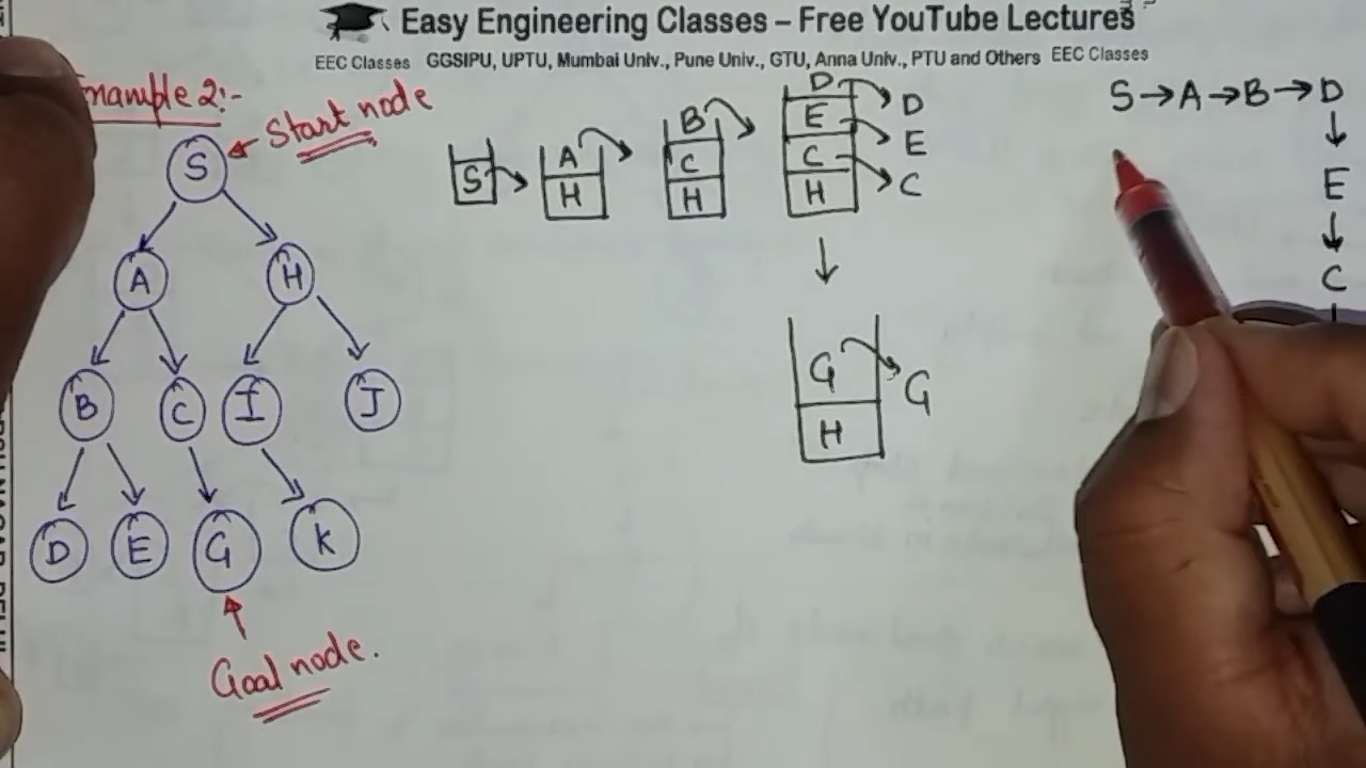 Easy Engineering Classes – Free YouTube Lectures
EEC Classes GGSIPU, UPTU, Mumbai Univ., Pune Univ., GTU, Anna Univ., PTU and Others EEC Classes
Example 2:-
Start node
S
A H
B C I J
D E G K
Goal node.
S
A
H
B
C
H
D
E
C
H
D
E
C
↓
G
H
G
S → A → B → D
↓
E
↓
C